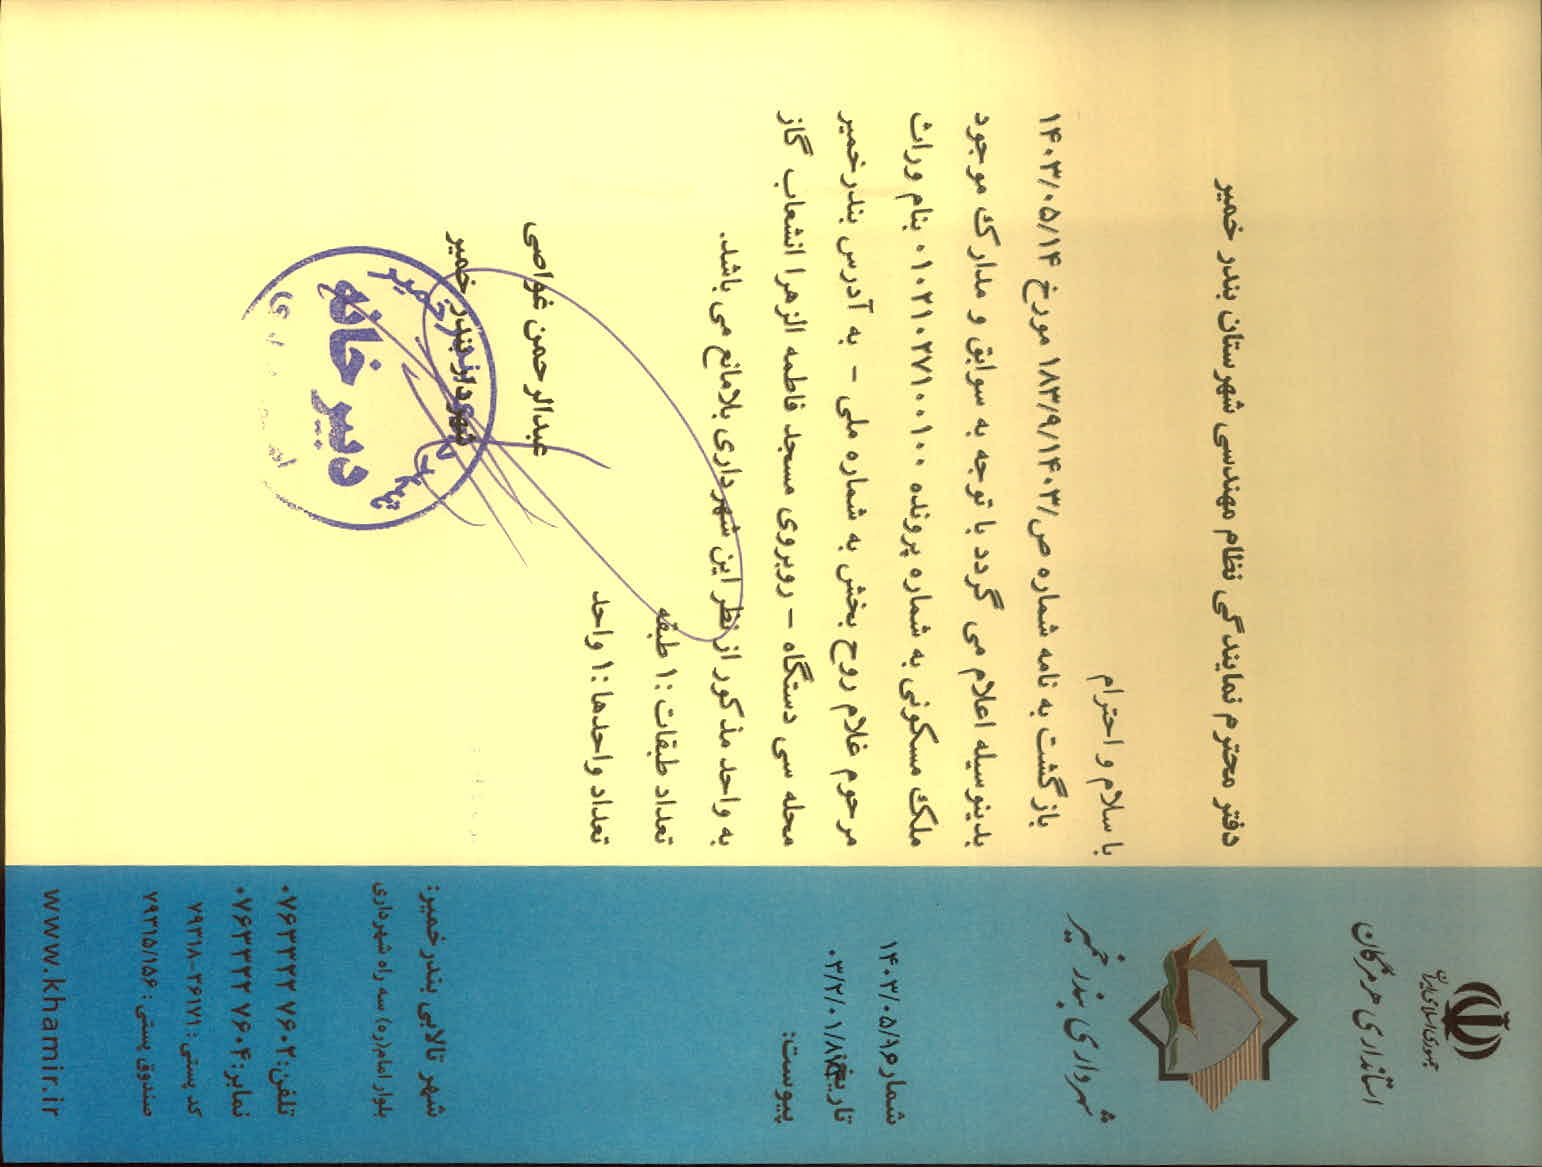 جمهوری اسلامی ایران
استانداری هرمزگان
شهرداری بندر خمیر
شماره ۱۴۰۳/۰۵/۱۶
تاریخ ۰۳/۲/۰۱/۸۴۴
پیوست:
دفتر محترم نمایندگی نظام مهندسی شهرستان بندر خمیر
با سلام و احترام
بازگشت به نامه شماره ص/۱۸۳/۹/۱۴۰۳ مورخ ۱۴۰۳/۰۵/۱۴
بدینوسیله اعلام می گردد با توجه به سوابق و مدارک موجود
ملک مسکونی به شماره پرونده ۰۱۰۲۱۰۲۷۱۰۰۱۰۰ بنام وراث
مرحوم غلام روح بخش به شماره ملی - به آدرس بندرخمیر
محله سی دستگاه - روبروی مسجد فاطمه الزهرا انشعاب گاز
به واحد مذکور از نظر این شهرداری بلامانع می باشد.
تعداد طبقات :۱ طبقه
تعداد واحدها :۱ واحد
عبدالرحمن غواصی
شهردار بندر خمیر
دبیر خانه
شهر تالابی بندرخمیر:
بلوار امام(ره) سه راه شهرداری
تلفن: ۰۷۶۳۳۲۲۷۶۰۲
نمابر: ۰۷۶۳۳۲۲۷۶۰۴
کد پستی : ۷۹۳۱۸-۴۶۱۷۱
صندوق پستی : ۷۹۳۱۵/۱۵۶
www.khamir.ir